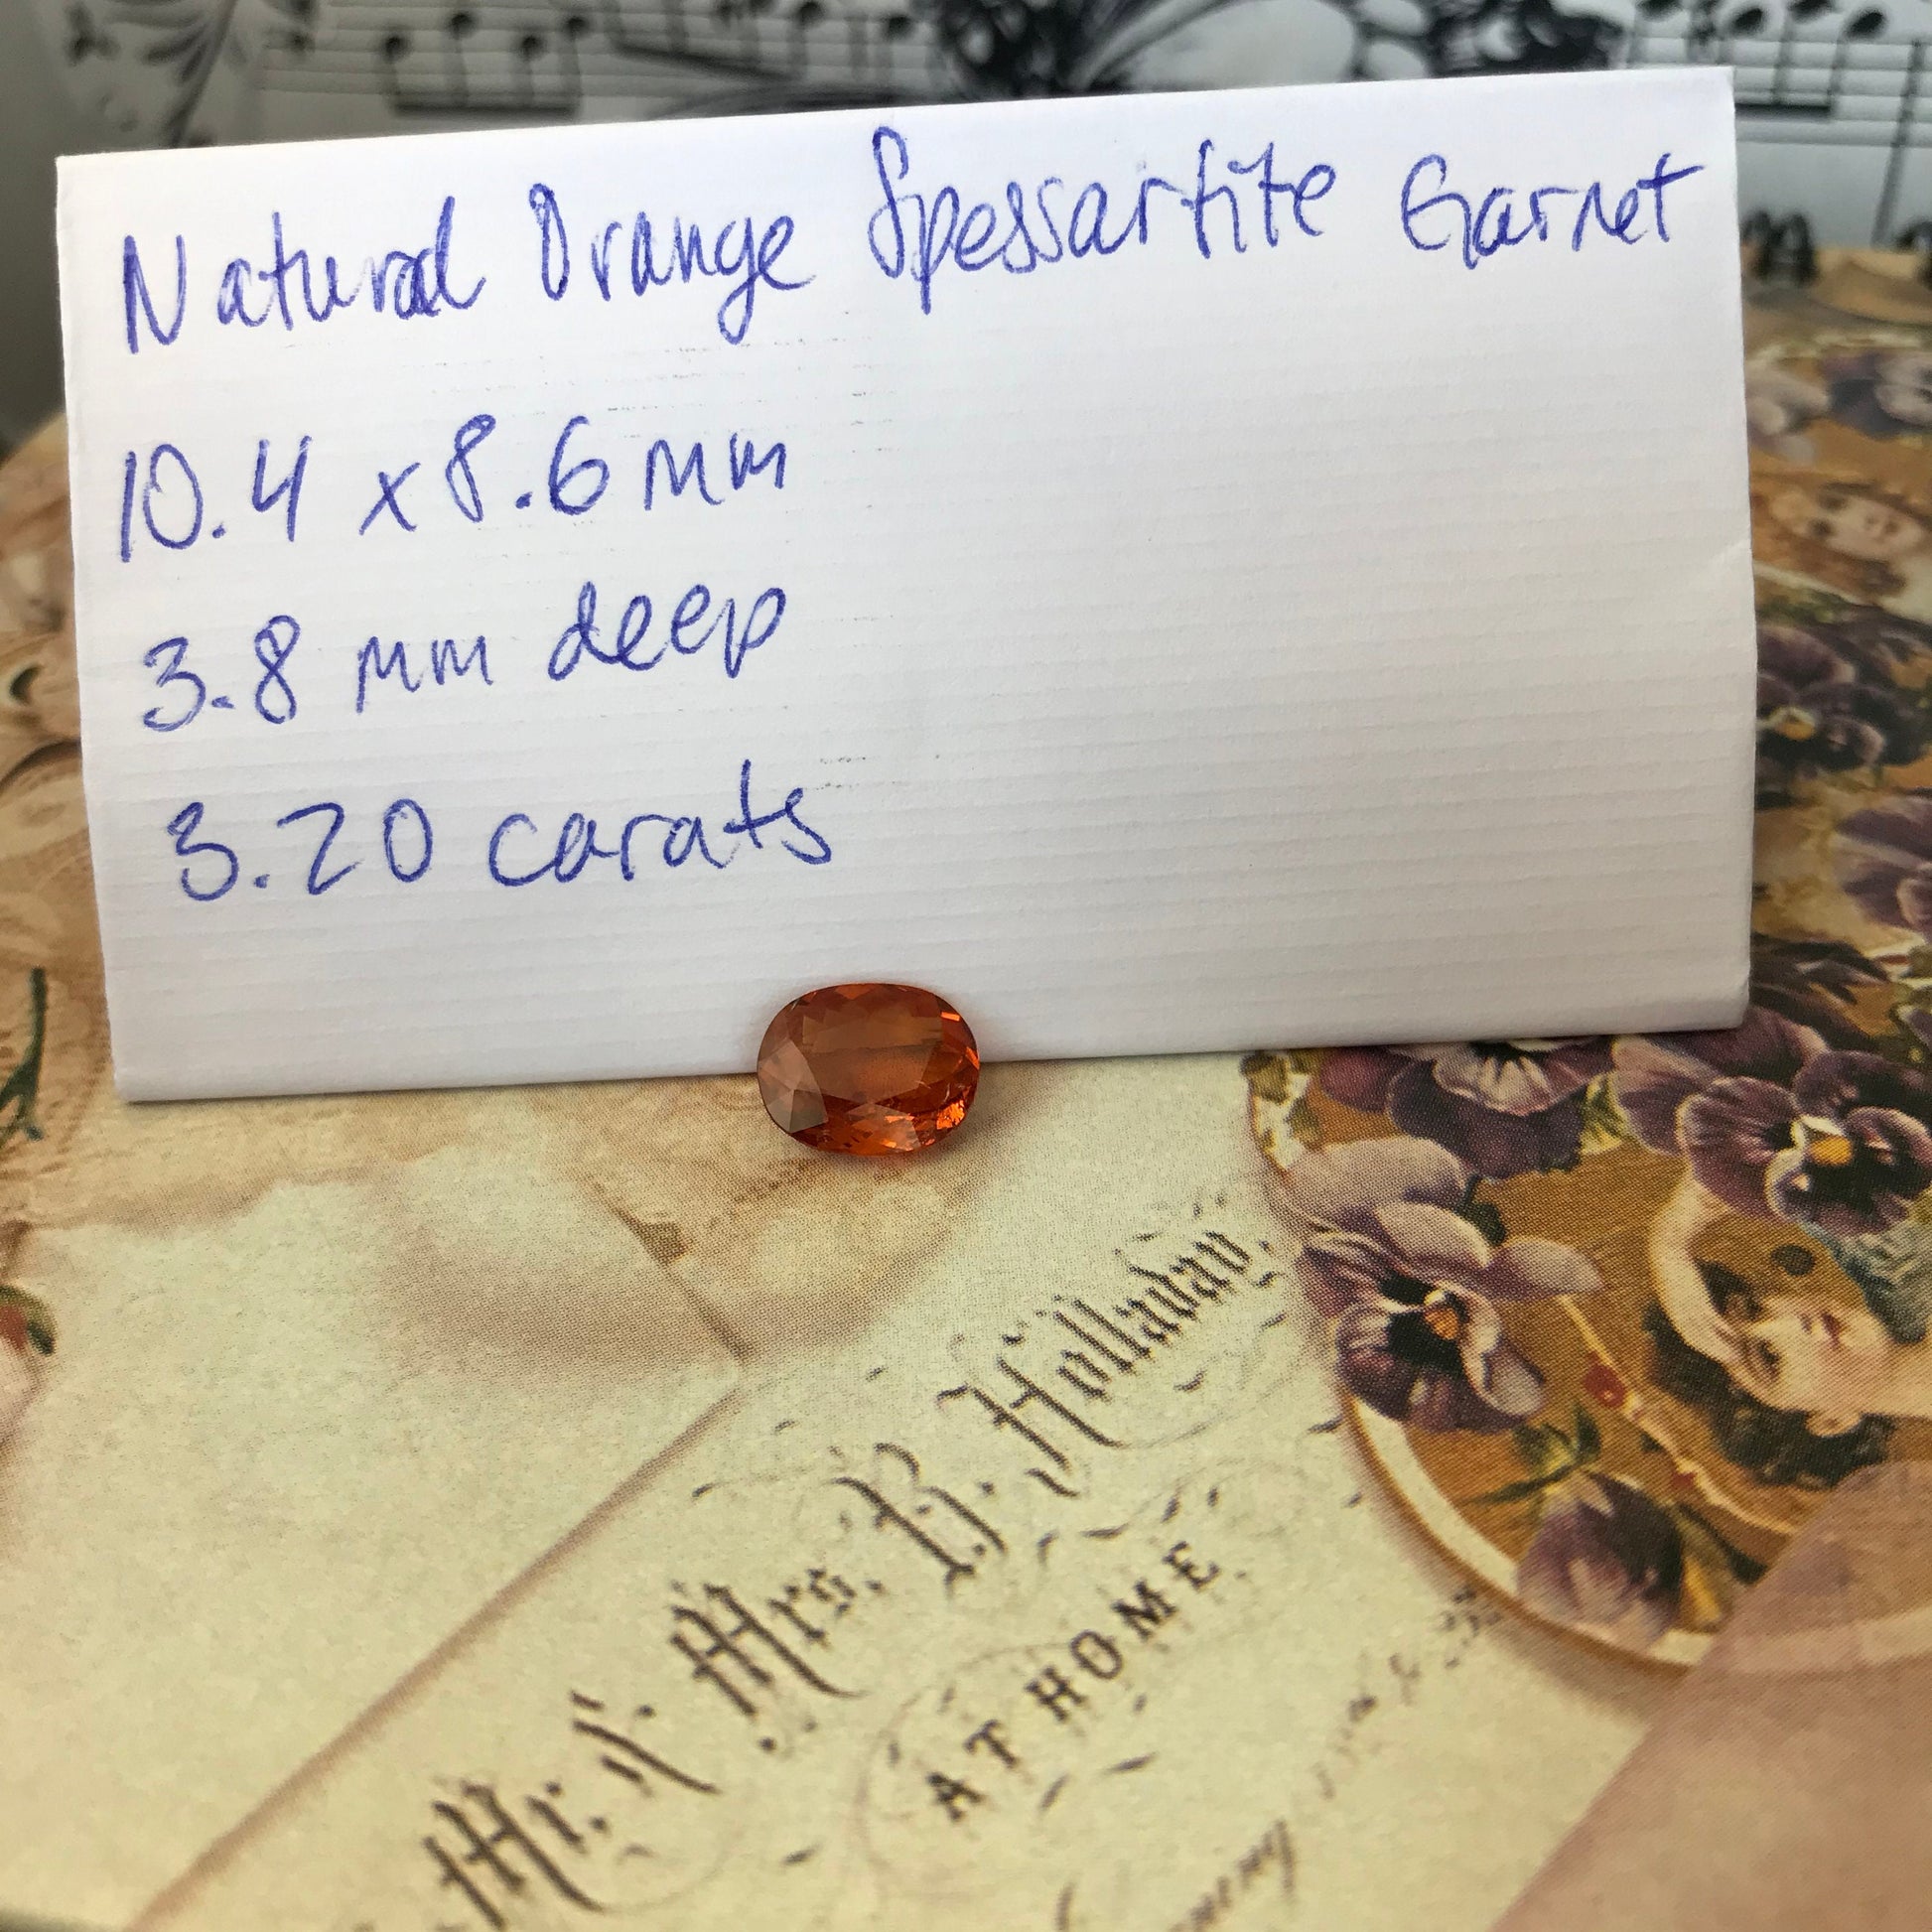 Natural Orange Spessartite Garnet
10.4 x 8.6 mm
3.8 mm deep
3.20 carats
Mr. & Mrs. B. Holladay,
AT HOME